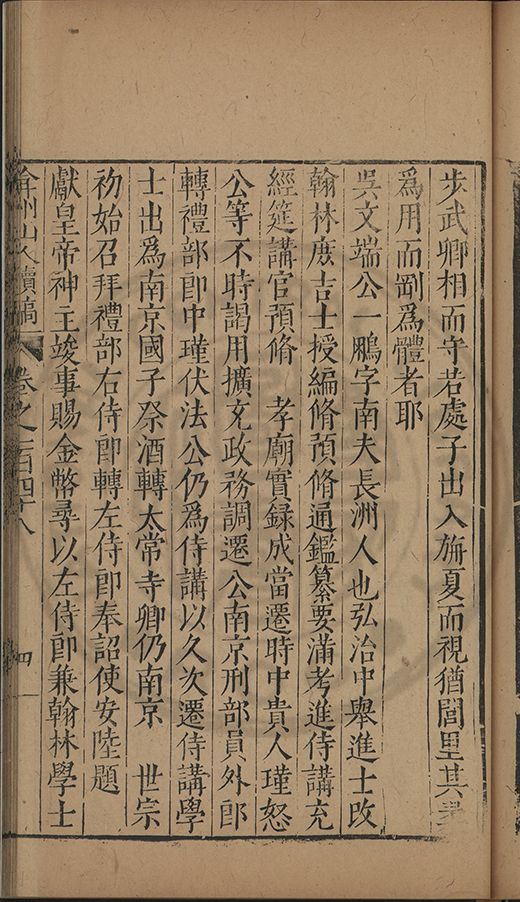 步武卿相而守若處子出入旃夏而視猶閭里其柔
爲用而剛爲體者耶
吳文端公一鵬字南夫長洲人也弘治中舉進士改
翰林庶吉士授編脩預脩通鑑纂要滿考進侍講充
經筵講官預脩　孝廟實録成當遷時中貴人瑾怒
公等不時謁用擴充政務調遷公南京刑部員外郎
轉禮部郎中瑾伏法公仍爲侍講以久次遷侍講學
士出爲南京國子祭酒轉太常寺卿仍南京　世宗
初始召拜禮部右侍郎轉左侍郎奉詔使安陸題
獻皇帝神主竣事賜金幣尋以左侍郎兼翰林學士
弇州山人續稿　卷之一百四十八　四